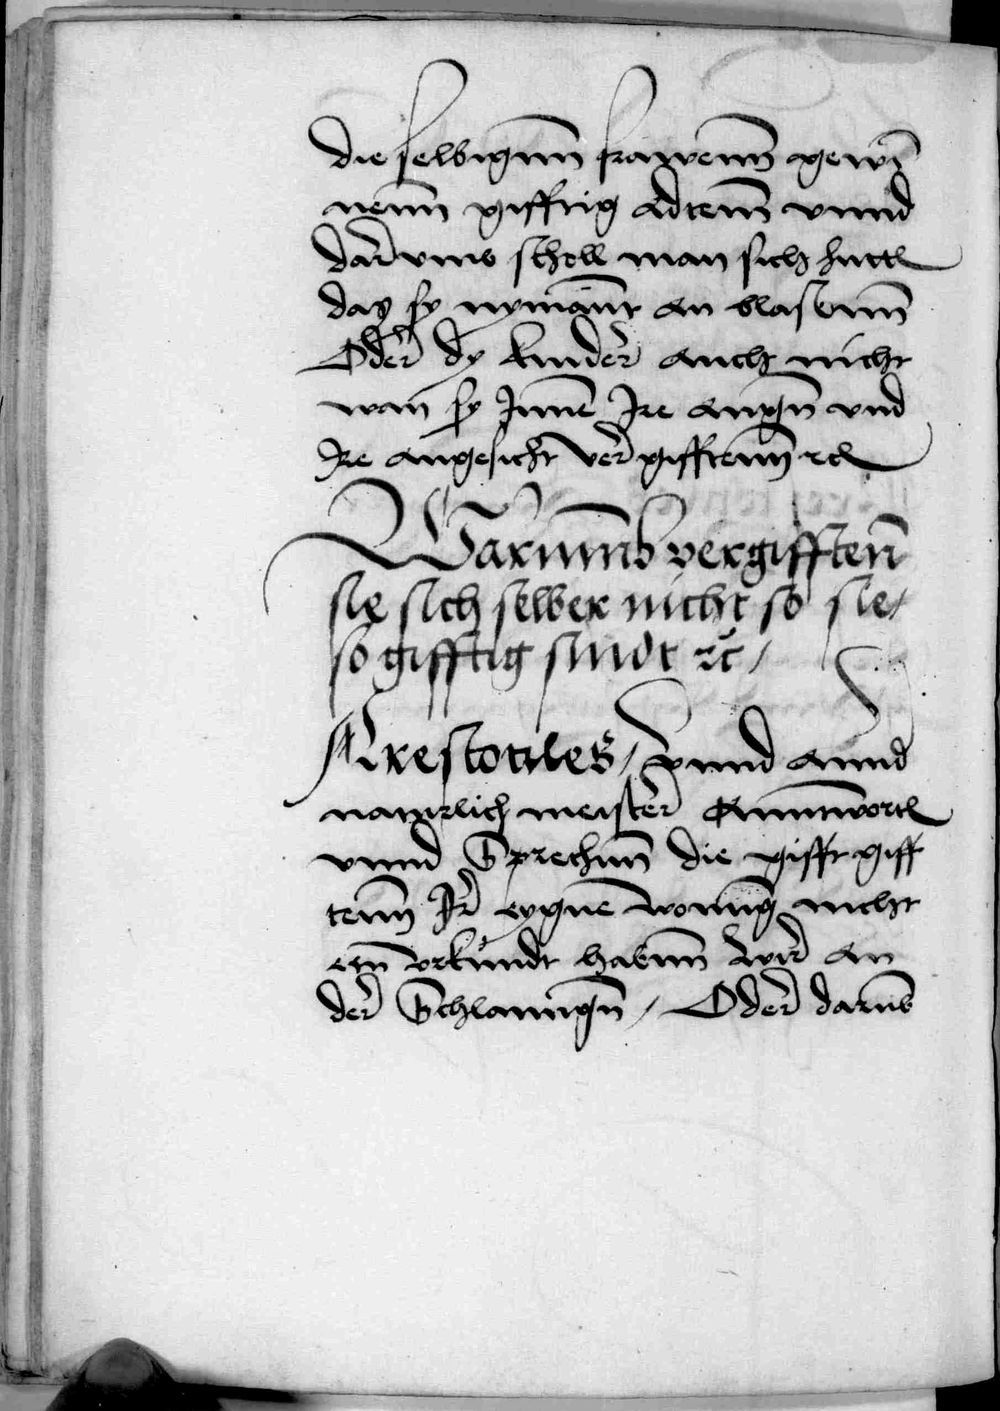 die selbigenn frawenn gewī
nenn gifftig adtenn vnnd
darvmb scholl man sich huttē
das sy nymant an blassenn
Oder dy kinder auch nicht
wan sy Jnnē Jre augn̄ vnd
Jre angesicht ver gifftenn ꝛc
Warumb vergifftenn̄
sie sich selber nicht so sie/
so gifftig sindt ꝛc̄ /
Arestotiles / vnnd annd
naturlich meister Anntwortē
vnnd Sprechenn die gifft giff
tenn Jr eygne wonūg nicht
ein vrkundt habenn wir an
der Schlanngn̄ / Oder darūb